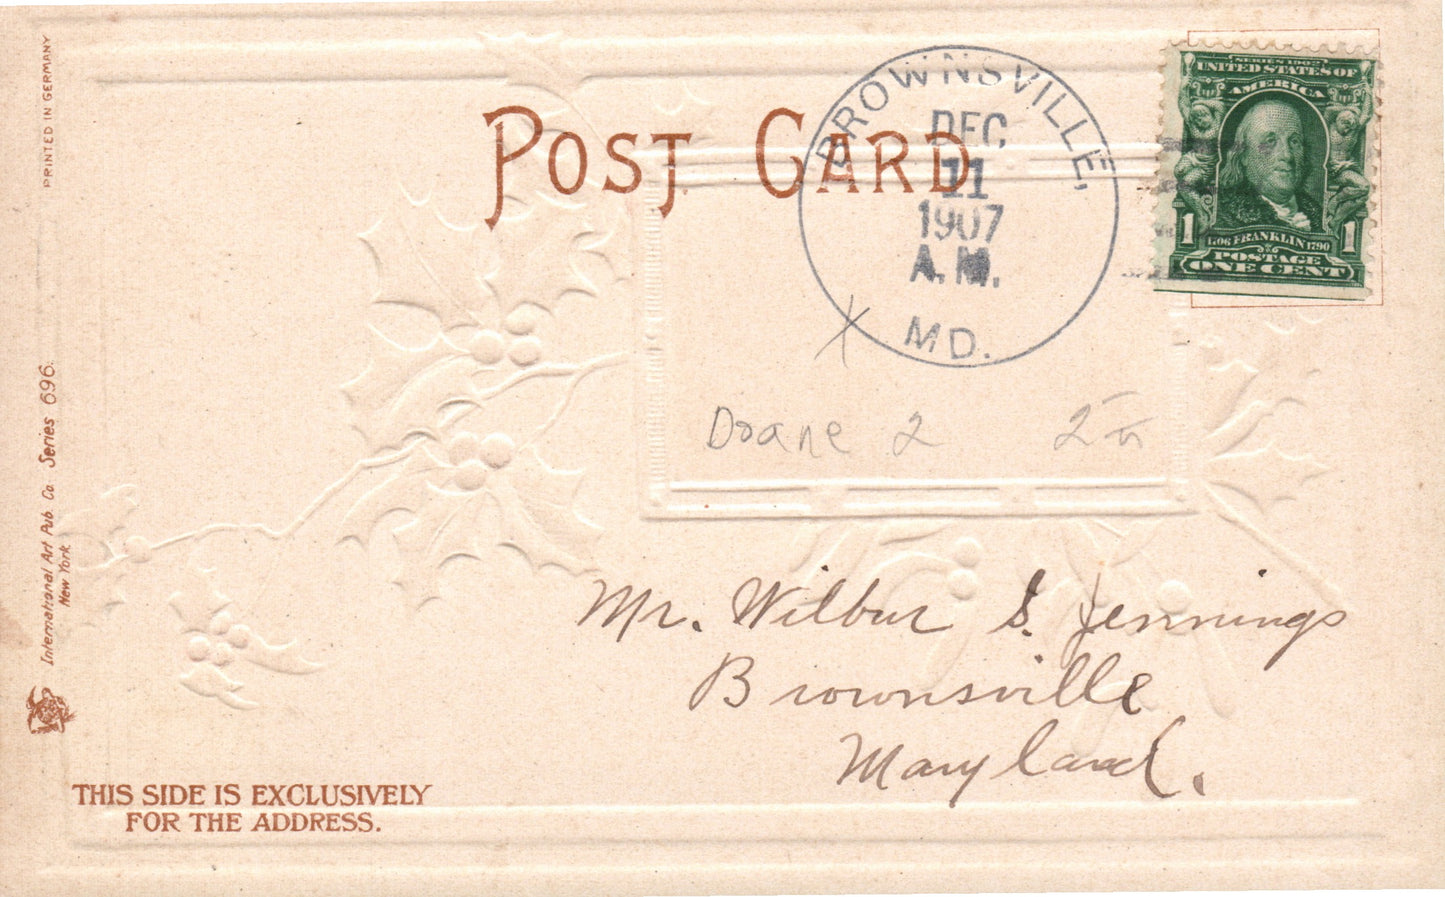 PRINTED IN GERMANY
POST CARD
BROWNSVILLE,
DEC
11
1907
A.M.
MD.
SERIES 1902
UNITED STATES OF
AMERICA
1 1
1706 FRANKLIN 1790
POSTAGE
ONE CENT
Doane 2
Mr. Wilbur S. Jennings
Brownsville
Maryland.
International Art Pub. Co. Series 696.
New York
THIS SIDE IS EXCLUSIVELY
FOR THE ADDRESS.